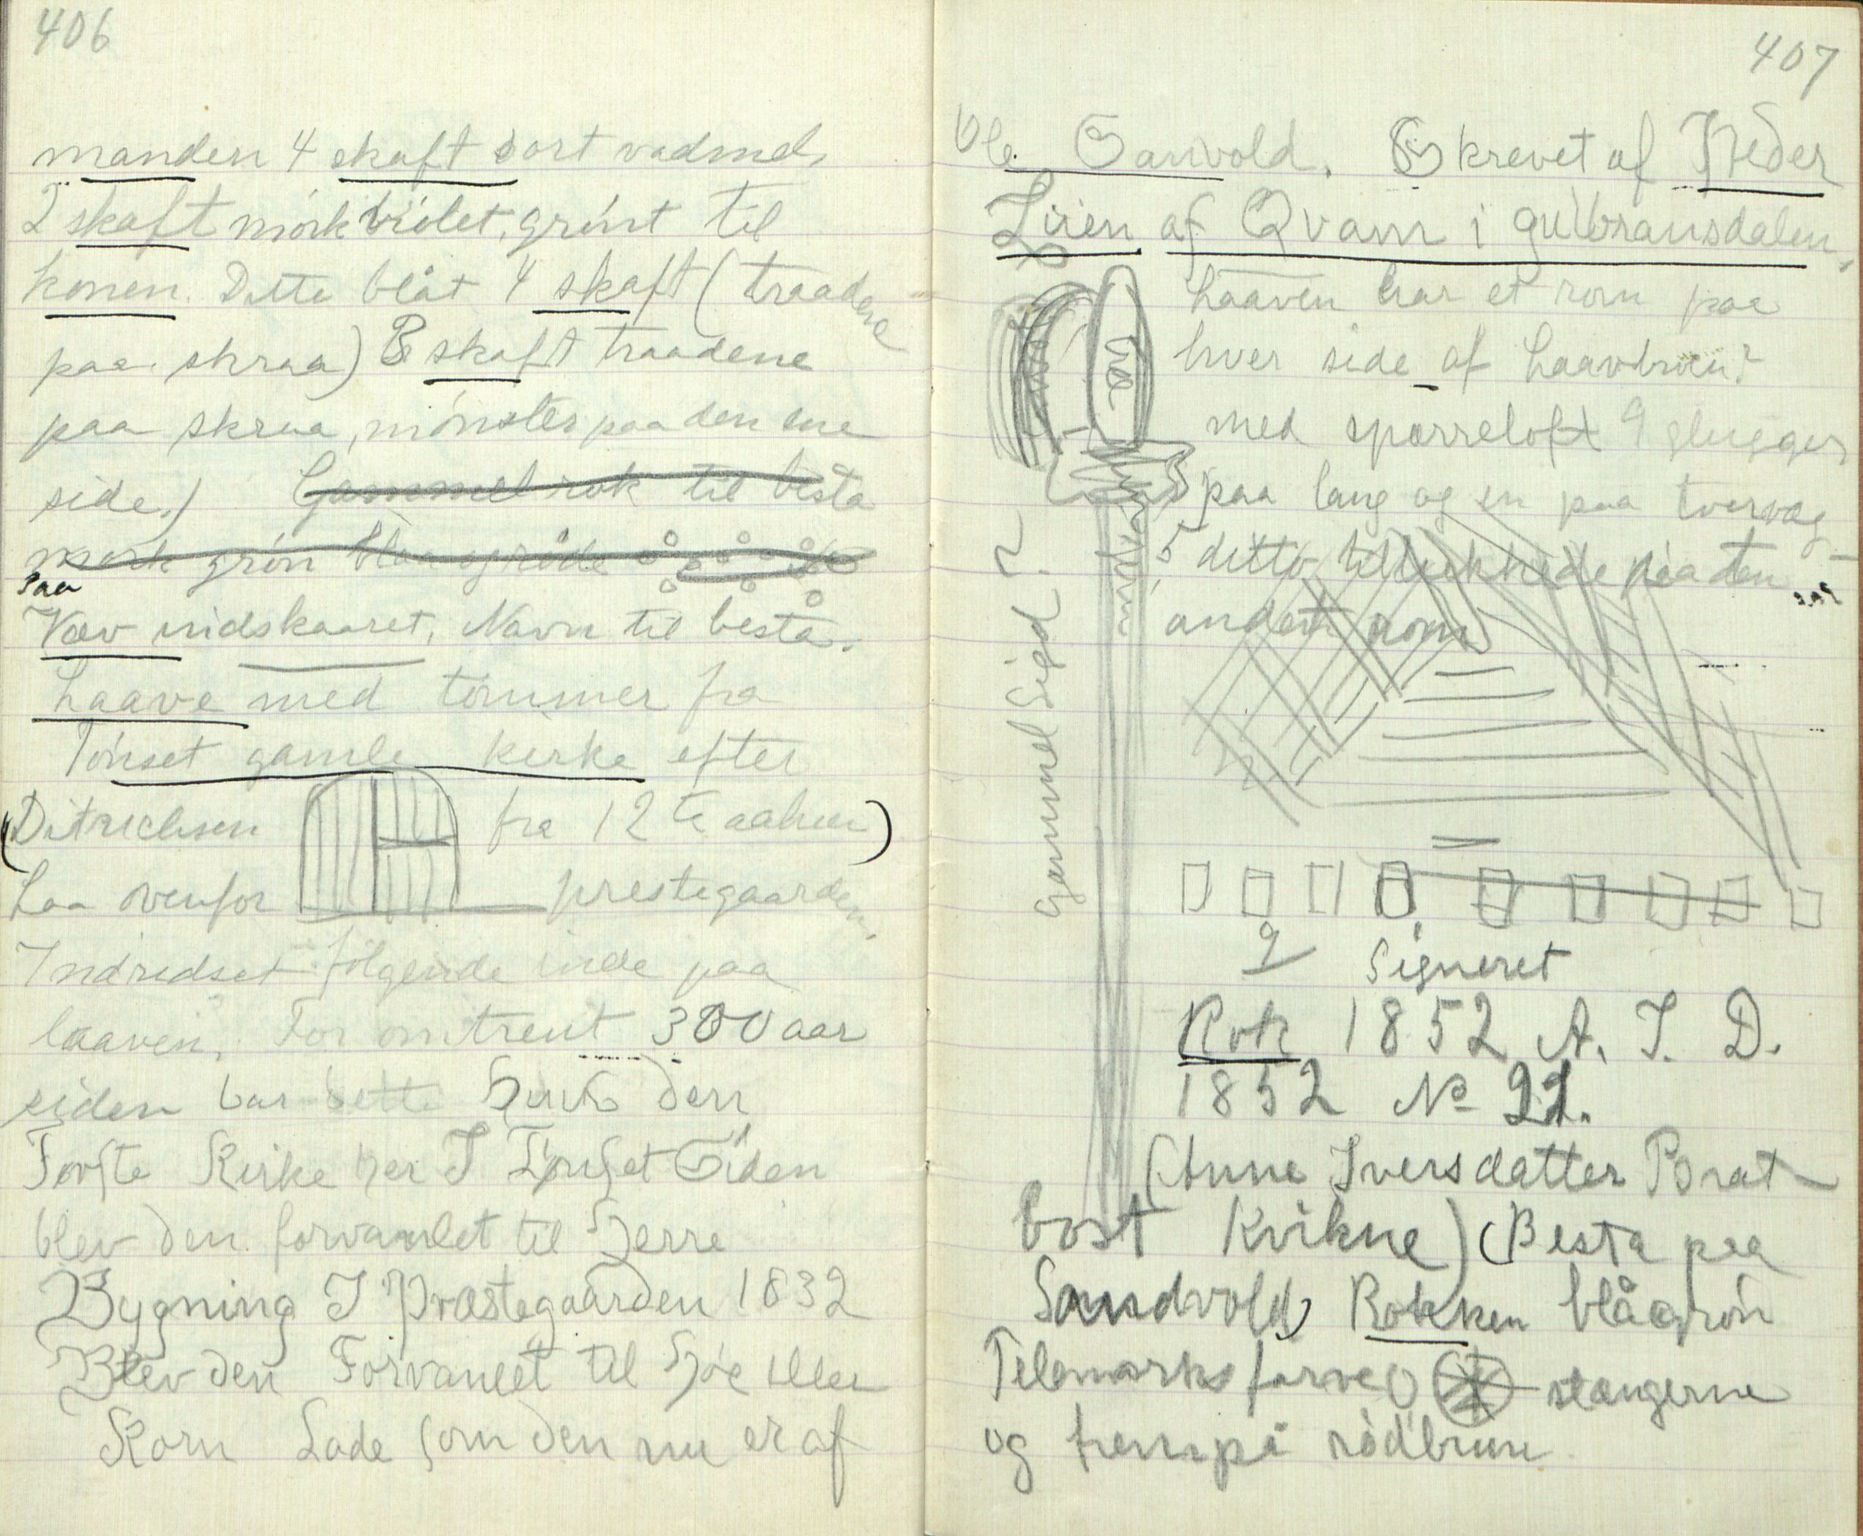 406
manden 4 skaft sort vadmel,
2 skaft mörk violet, grönt til
konen. Dette blåt 4 skaft (traadene
paa skraa) 3 skaft traadene
paa skraa, mönster paa den ene
side.) Gammel rok til besta
mørk grön blaa og røde
paa
Væv indskaaret, Navn til besta.
Laave med tömmer fra
Tönset gamle kirke efter
(Ditrichsen fra 12te aarhun)
Laa ovenfor prestegaarden,
Indridset fölgende inde paa
laaven, For omtrent 300 aar
siden var dette Huus den
Forste Kirke her I Tønset Siden
blev den forvanlet til Herre
Bygning I Præstegaarden 1832
Blev den Forvanlet til Høe eller
Korn Lade som den nu er af
407
Ole Sanvold. Skrevet af Peder
Lien af Qvam i gulbransdalen,
Laaven har et rom paa
hver side af Laavbroen?
med sparreloft 9 glugger
paa lang og en paa tvervæg
5 ditto tillukkede paa den
andet rom
Gammel Sigd?
9 Signeret
Rok 1852 A. I. D.
1852 No 22.
(Anne Iversdatter Borat
bost Kvikne) (Besta paa
Sandvold) Rokken blågrön
Telemarksfarve stængerne
og trempå rödbrun